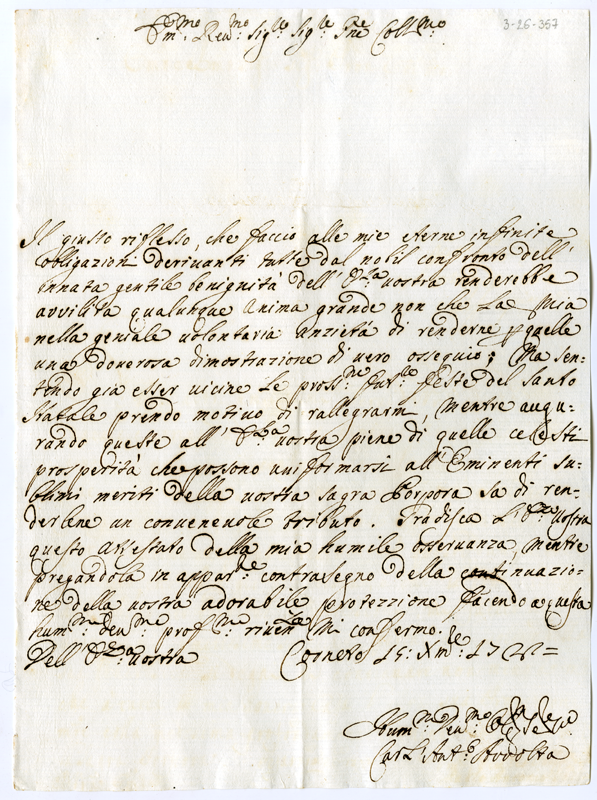 3-26-357
Em:mo Rev:mo Sig:re Sig:re Pne Coll:mo
Il giusto riflesso, che faccio alle mie eterne infinite
obligazioni derivanti tutte dal nobil confronto dell'
innata gentile benignità dell' E:za vostra renderebbe
avvilita qualunque Anima grande non che La Mia
nella geniale volontaria anzietà di renderne p quelle
una doverosa dimostrazione di vero ossequio; Ma sen-
tendo già esser vicine Le pross:me fut:re feste del santo
Natale prendo motivo di rallegrarmi, mentre augu-
rando queste all' E:za vostra piene di quelle celesti
prosperità che possono uniformarsi all' Eminenti su-
blimi meriti della vostra sagra Porpora sa di ren-
derlene un convenevole tributo. Gradisca L' E:za vostra
questo attestato della mia humile osservanza, mentre
pregandola in appar:te contrasegno della continuazio-
ne della vostra adorabile protezzione facendo a questa
hum:ma dev:ma prof:ma riven:za Mi confermo.
Dell' E:za vostra Corneto 15: Xm:re 17
Hum:mo Dev:mo
Carl' Ant:o